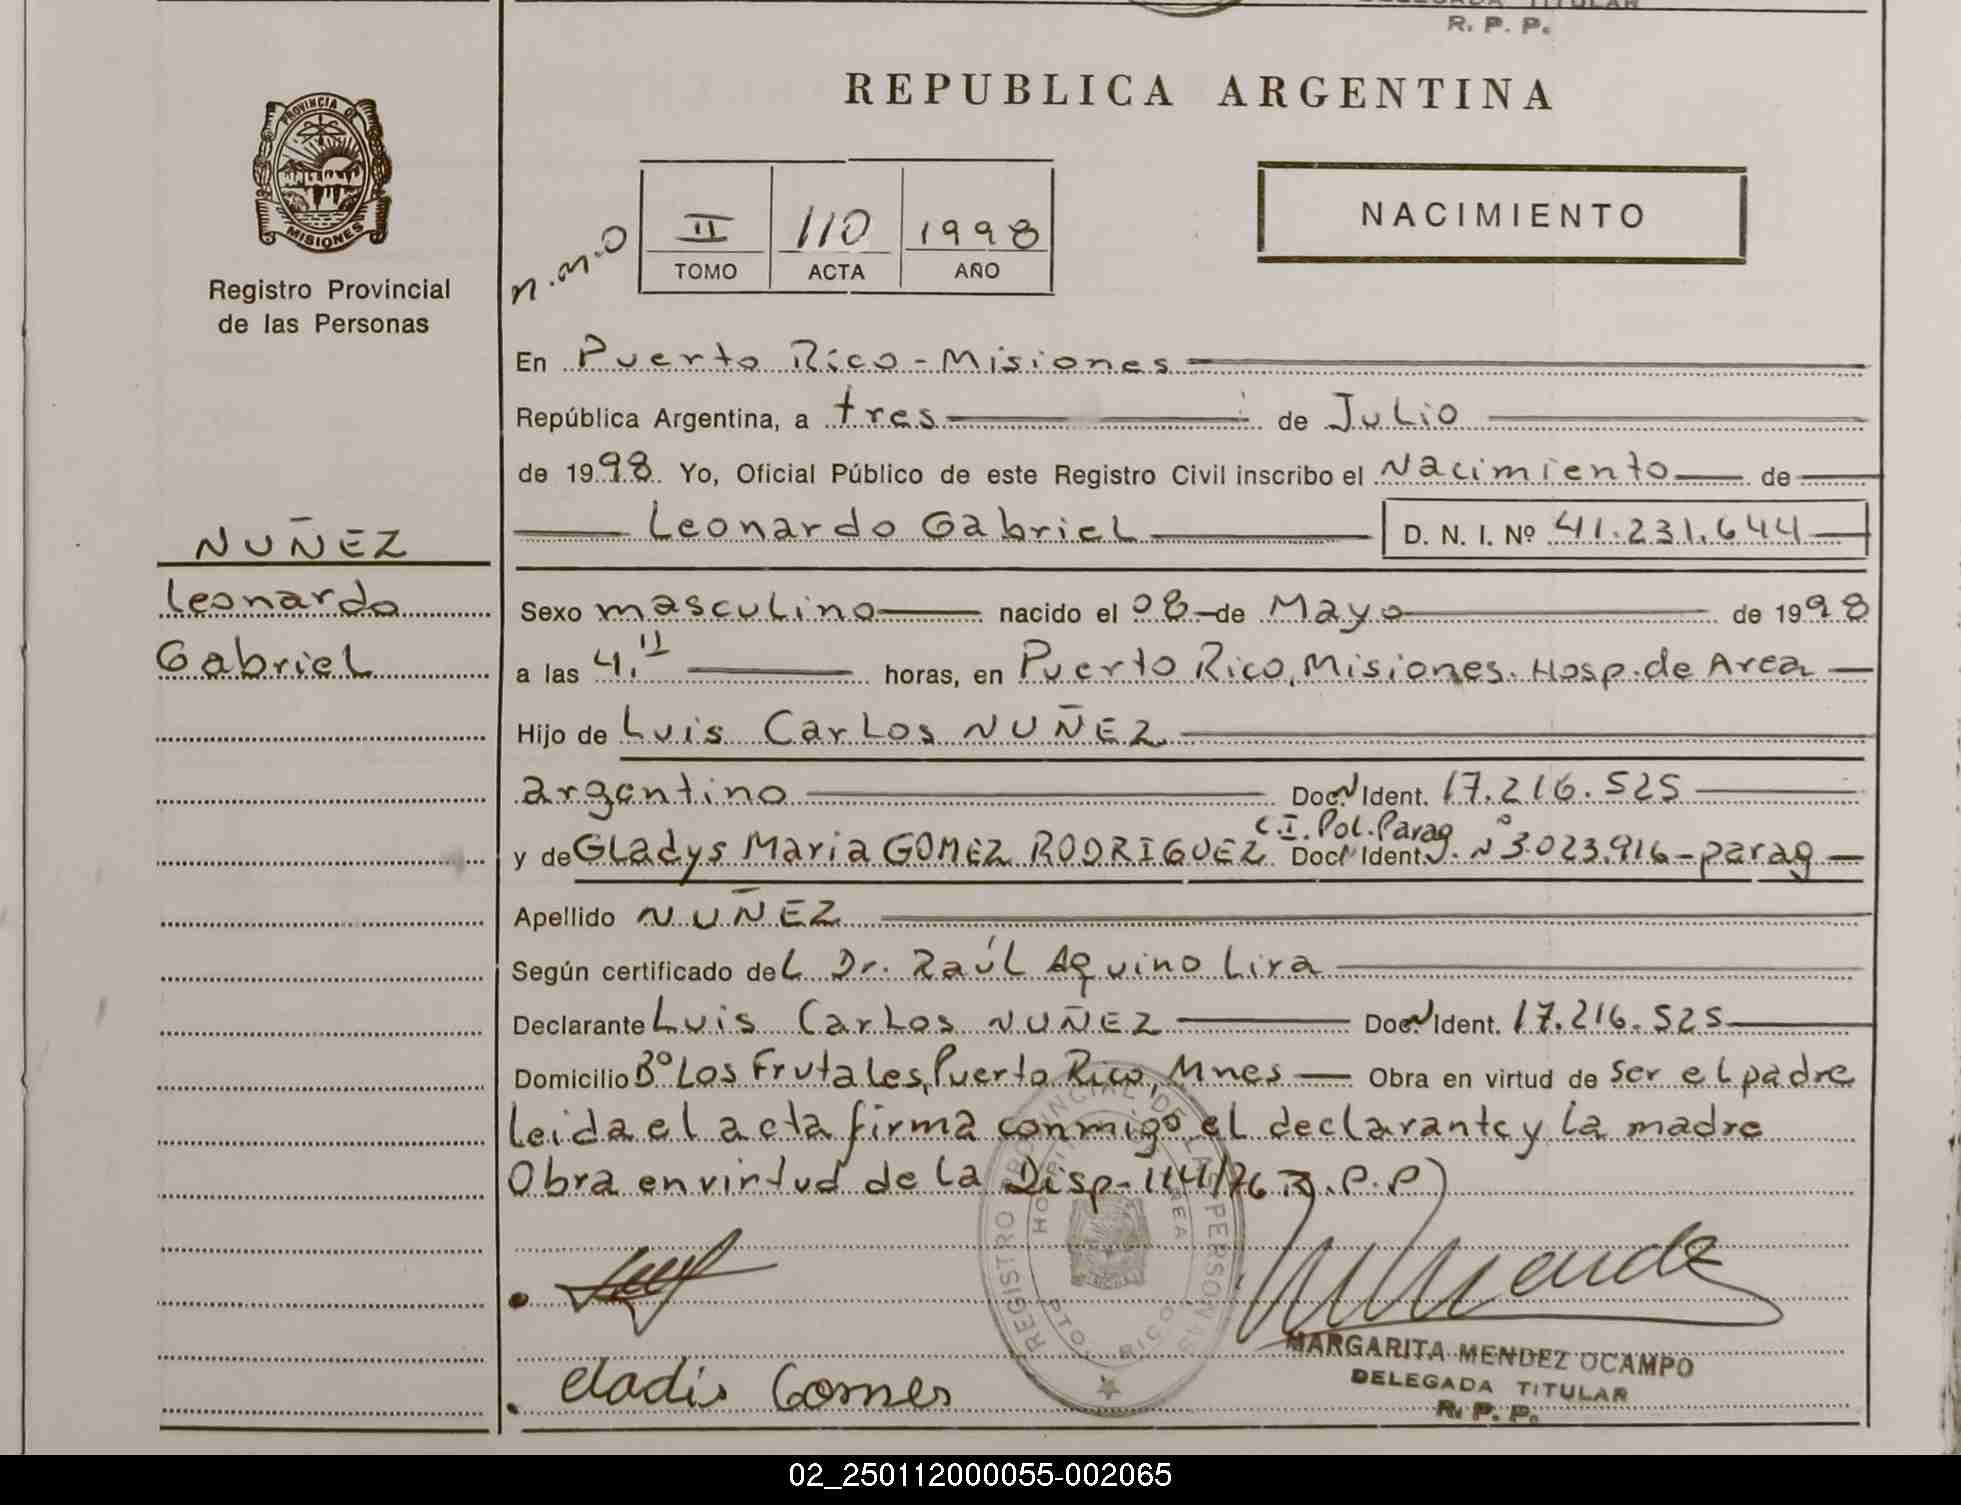 DELEGADA TITULAR
R. P. P.
REPUBLICA ARGENTINA
PROVINCIA DE
MISIONES
Registro Provincial
de las Personas
n.m.o
II 110 1998
TOMO ACTA AÑO
NACIMIENTO
En Puerto Rico - Misiones
República Argentina, a tres de Julio
de 1998 Yo, Oficial Público de este Registro Civil inscribo el Nacimiento de
Leonardo Gabriel D. N. I. Nº 41.231.644
NUÑEZ
Leonardo
Gabriel
Sexo masculino nacido el 08 de Mayo de 1998
a las 4." horas, en Puerto Rico, Misiones. Hosp. de Area
Hijo de Luis Carlos NUÑEZ
argentino Doc. N Ident. 17.216.525
C.I. Pol. Parag
y de Gladys Maria GOMEZ RODRIGUEZ Doc. Ident. Nº 3.023.916 - parag
Apellido NUÑEZ
Según certificado del Dr. Raúl Aquino Lira
Declarante Luis Carlos NUÑEZ Doc. N Ident. 17.216.525
Domicilio Bº Los Frutales, Puerto Rico, Mnes Obra en virtud de ser el padre
leida el acta firma conmigo el declarante y la madre
Obra en virtud de la Disp. 114/76 R.P.P)
REGISTRO PROVINCIAL DE LAS PERSONAS
Mende
MARGARITA MENDEZ OCAMPO
DELEGADA TITULAR
R. P. P.
eladis Gomes
02_250112000055-002065